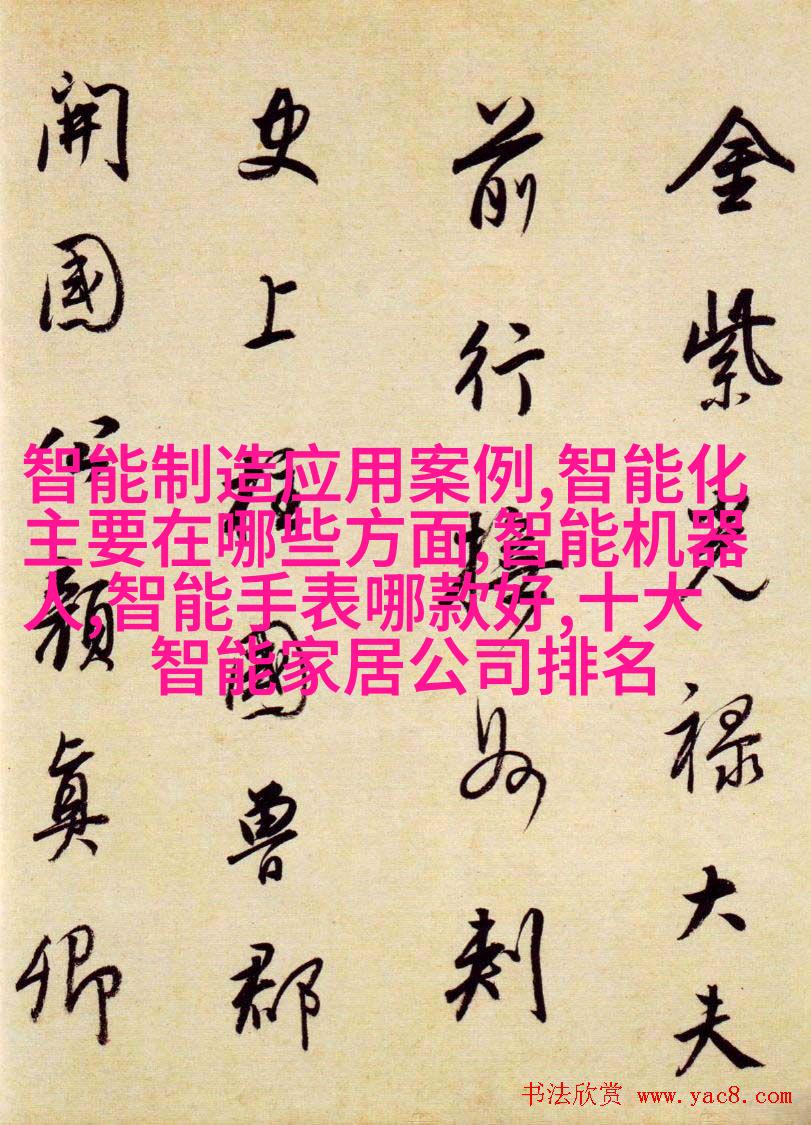 金紫光禄大夫
前行撫州刺
史上柱國魯郡
開國公顏真卿
智能制造应用案例,智能化
主要在哪些方面,智能机器
人,智能手表哪款好,十大
智能家居公司排名
书法欣赏 www.yac8.com